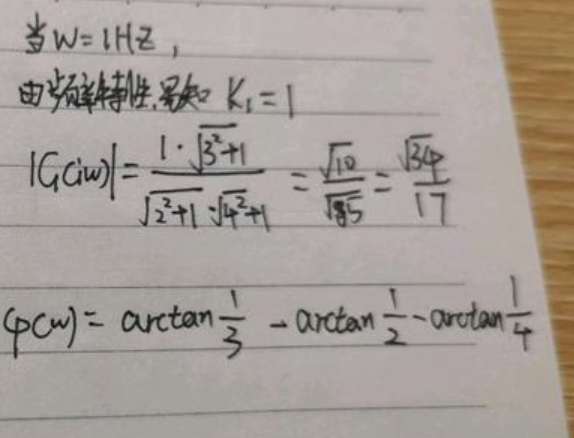 当 W=1HZ,
由频率特性,易知 K₁=1
|G(iw)| = \frac{1·\sqrt{3²+1}}{\sqrt{2²+1}·\sqrt{4²+1}} = \frac{\sqrt{10}}{\sqrt{85}} = \frac{\sqrt{34}}{17}
φ(w) = arctan\frac{1}{3} - arctan\frac{1}{2} - arctan\frac{1}{4}